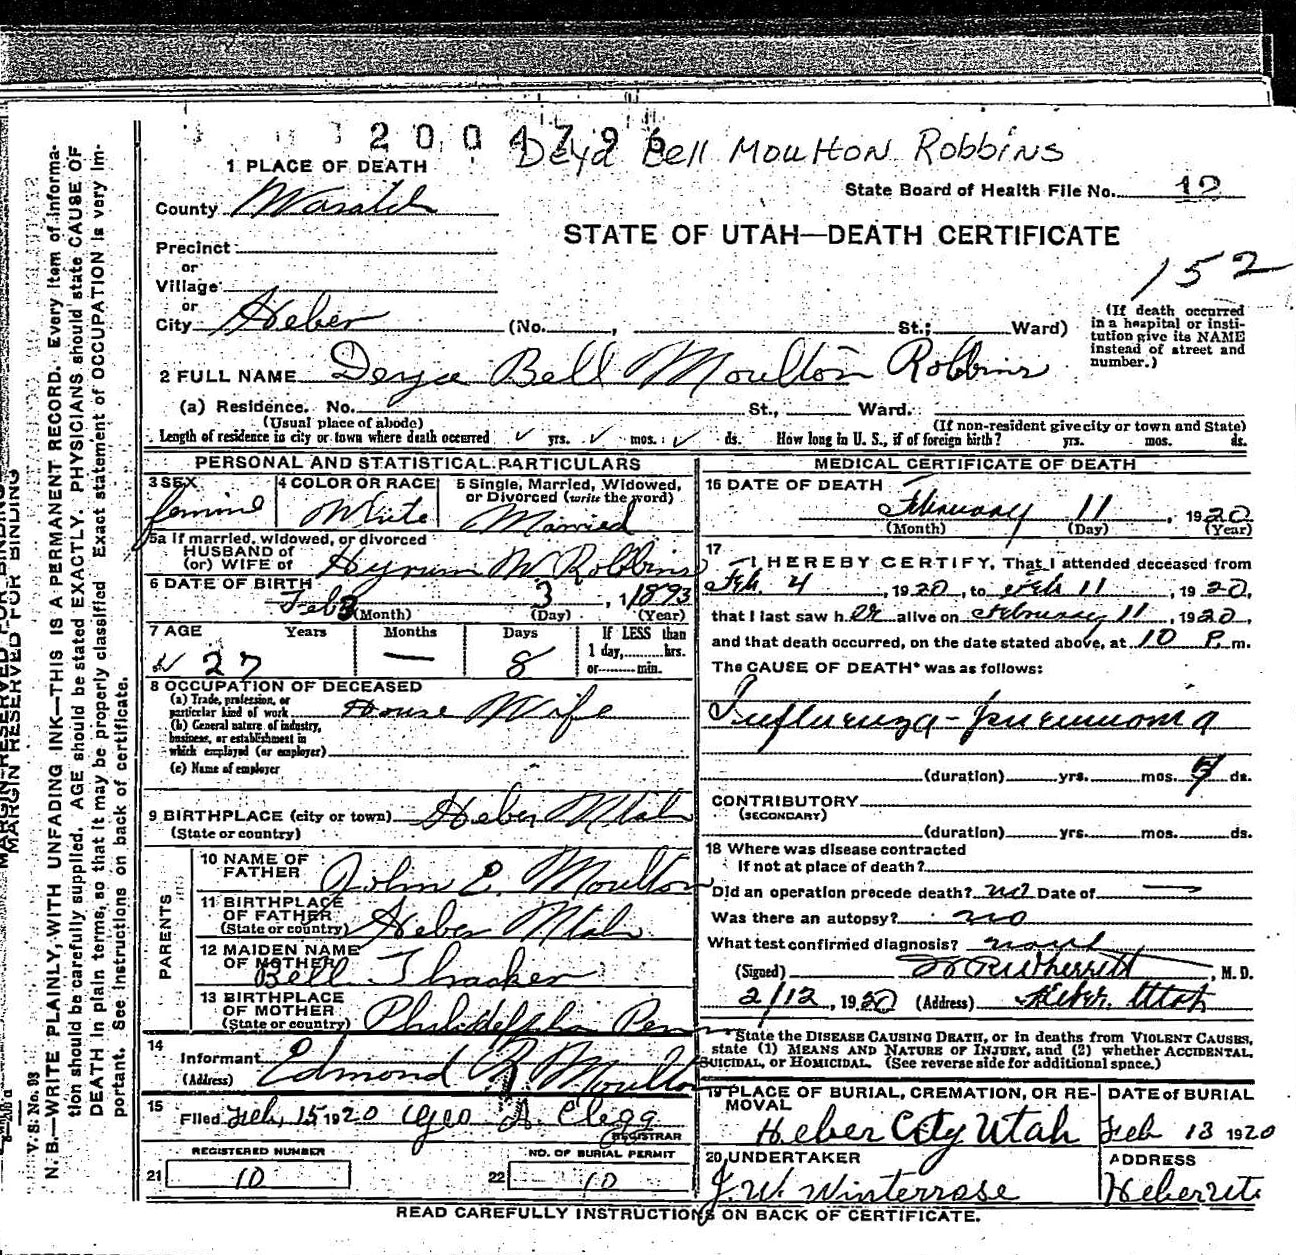 2004796
Deyd Bell Moulton Robbins
1 PLACE OF DEATH
State Board of Health File No. 12
County Wasatch
STATE OF UTAH—DEATH CERTIFICATE
Precinct
or
152
Village
or
City Heber (No. , St.; Ward)
(If death occurred in a hospital or insti-
tution give its NAME
instead of street and
number.)
2 FULL NAME Deyce Bell Moulton Robbins
(a) Residence. No. St., Ward.
(Usual place of abode) (If non-resident give city or town and State)
Length of residence in city or town where death occurred ✓ yrs. ✓ mos. ✓ ds. How long in U. S., if of foreign birth? yrs. mos. ds.
PERSONAL AND STATISTICAL PARTICULARS
3 SEX 4 COLOR OR RACE 5 Single, Married, Widowed,
or Divorced (write the word)
femine White Married
5a If married, widowed, or divorced
HUSBAND of
(or) WIFE of Hyrum W Robbins
6 DATE OF BIRTH
Feb 3 , 1893
(Month) (Day) (Year)
7 AGE Years Months Days If LESS than
1 day, hrs.
or min.
27 — 8
8 OCCUPATION OF DECEASED
(a) Trade, profession, or
particular kind of work House Wife
(b) General nature of industry,
business, or establishment in
which employed (or employer)
(c) Name of employer
9 BIRTHPLACE (city or town) Heber Utah
(State or country)
PARENTS
10 NAME OF
FATHER John E. Moulton
11 BIRTHPLACE
OF FATHER
(State or country) Heber Utah
12 MAIDEN NAME
OF MOTHER
Bell Thacker
13 BIRTHPLACE
OF MOTHER
(State or country) Philidelphia Penn
14
Informant Edmond R. Moulton
(Address)
15
Filed Feb, 15 1920 Geo A. Clegg
REGISTRAR
REGISTERED NUMBER NO. OF BURIAL PERMIT
21 10 22 10
MEDICAL CERTIFICATE OF DEATH
16 DATE OF DEATH
February 11, 1920
(Month) (Day) (Year)
17
I HEREBY CERTIFY, That I attended deceased from
Feb. 4, 1920, to Feb 11, 1920,
that I last saw her alive on February 11, 1920,
and that death occurred, on the date stated above, at 10 P. m.
The CAUSE OF DEATH* was as follows:
Influenza-pneumonia
(duration) yrs. mos. ds.
CONTRIBUTORY
(SECONDARY)
(duration) yrs. mos. ds.
18 Where was disease contracted
if not at place of death?
Did an operation precede death? no Date of —
Was there an autopsy? no
What test confirmed diagnosis? none
(Signed) W R Wherritt, M. D.
2/12, 1920 (Address) Heber. Utah
*State the DISEASE CAUSING DEATH, or in deaths from VIOLENT CAUSES,
state (1) MEANS AND NATURE OF INJURY, and (2) whether ACCIDENTAL,
SUICIDAL, or HOMICIDAL. (See reverse side for additional space.)
19 PLACE OF BURIAL, CREMATION, OR RE-
MOVAL
DATE of BURIAL
Heber City Utah Feb 13 1920
20 UNDERTAKER ADDRESS
J. W. Winterrose Heber Ut.
READ CAREFULLY INSTRUCTIONS ON BACK OF CERTIFICATE.
MARGIN RESERVED FOR BINDING
V. S. No. 93
N. B.—WRITE PLAINLY, WITH UNFADING INK—THIS IS A PERMANENT RECORD. Every item of informa-
tion should be carefully supplied. AGE should be stated EXACTLY. PHYSICIANS should state CAUSE OF
DEATH in plain terms, so that it may be properly classified. Exact statement of OCCUPATION is very im-
portant. See instructions on back of certificate.